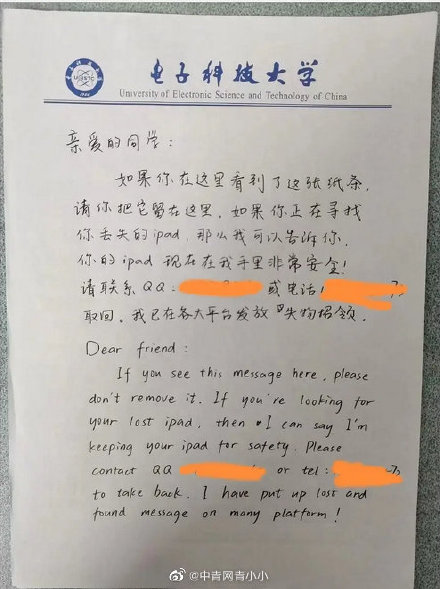 电子科技大学
University of Electronic Science and Technology of China
亲爱的同学：
如果你在这里看到了这张纸条，
请你把它留在这里。如果你正在寻找
你丢失的ipad，那么我可以告诉你，
你的ipad 现在在我手里非常安全！
请联系QQ： 或电话：
取回。我已在各大平台发放“失物招领。
Dear friend:
If you see this message here, please
don't remove it. If you're looking for
your lost ipad, then I can say I'm
keeping your ipad for safety. Please
contact QQ or tel:
to take back. I have put up lost and
found message on many platform!
@中青网青小小